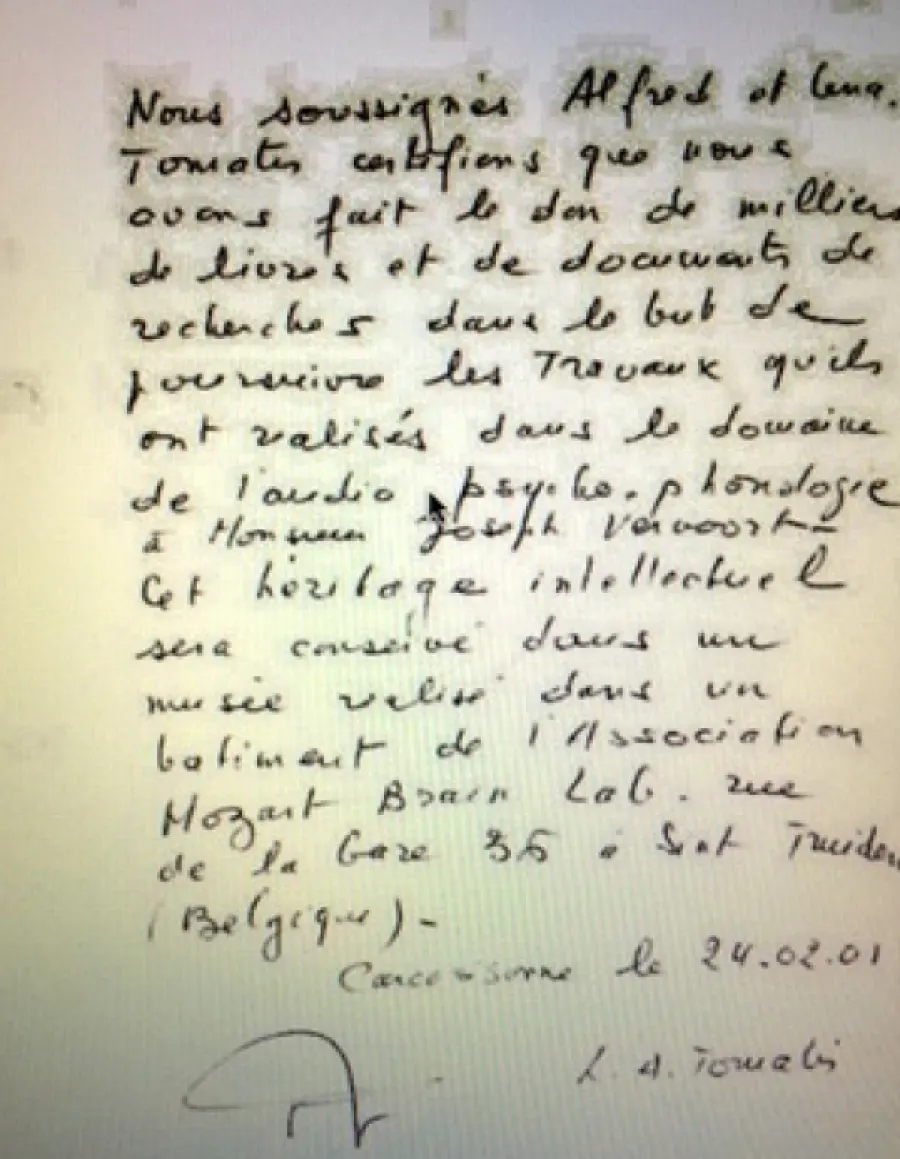 Nous soussignés Alfred et Lena.
Tomatis certifions que nous
avons fait le don de milliers
de livres et de documents de
recherches dans le but de
poursuivre les Travaux qu'ils
ont réalisés dans le domaine
de l'audio psycho. phonologie
à Monsieur Joseph Vervoort -
Cet héritage intellectuel
sera conservé dans un
musée réalisé dans un
batiment de l'Association
Mozart Brain Lab. rue
de la Gare 35 à Sint Truiden
(Belgique) -
Carcassonne le 24.02.01
L. A. Tomatis